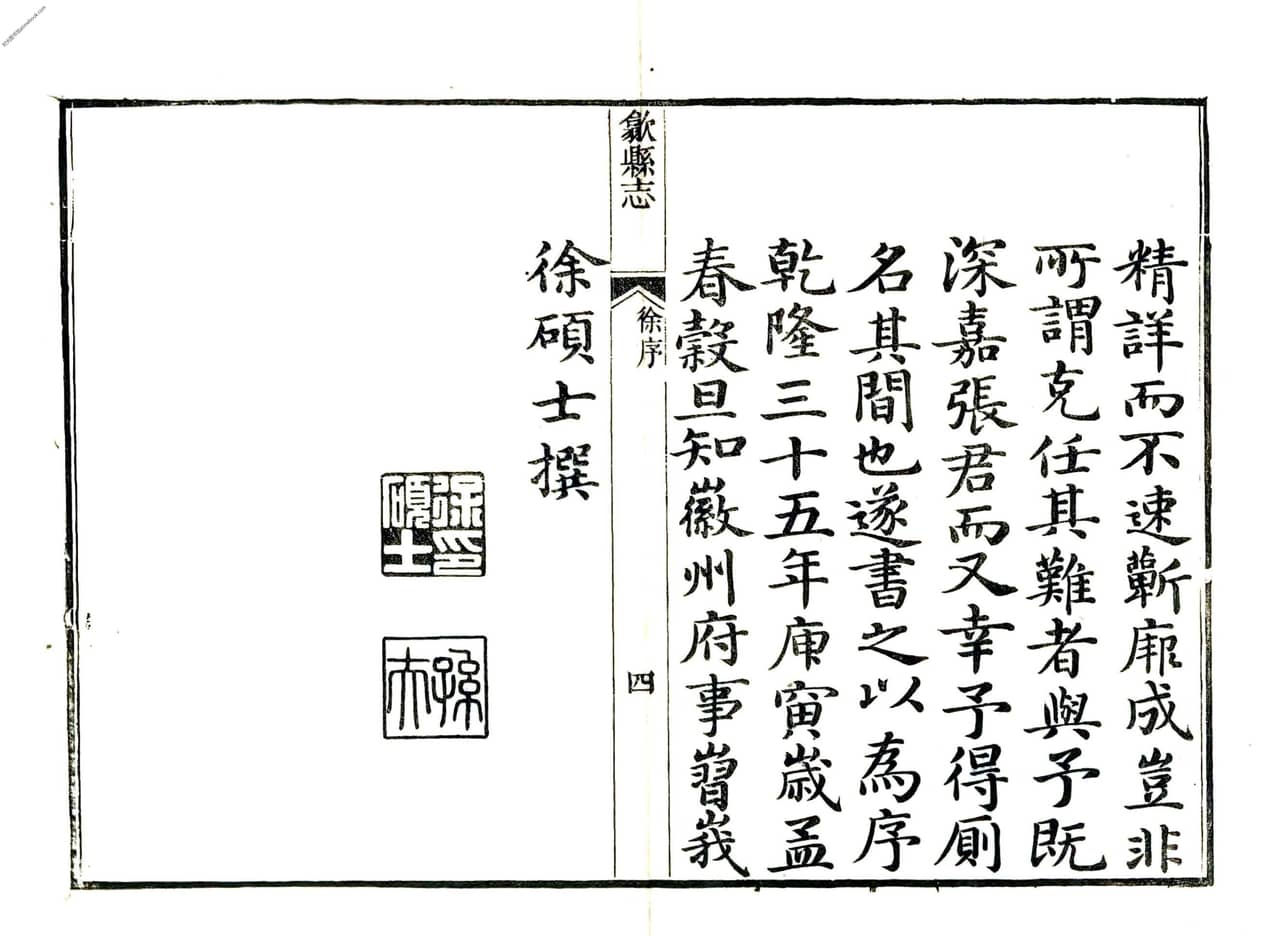 精詳而不速蘄成豈非
所謂克任其難者與予既
深嘉張君而又幸予得厠
名其間也遂書之以為序
乾隆三十五年庚寅歲孟
春穀旦知徽州府事嶍峩
歙縣志
徐序
四
徐碩士撰
徐印
碩士